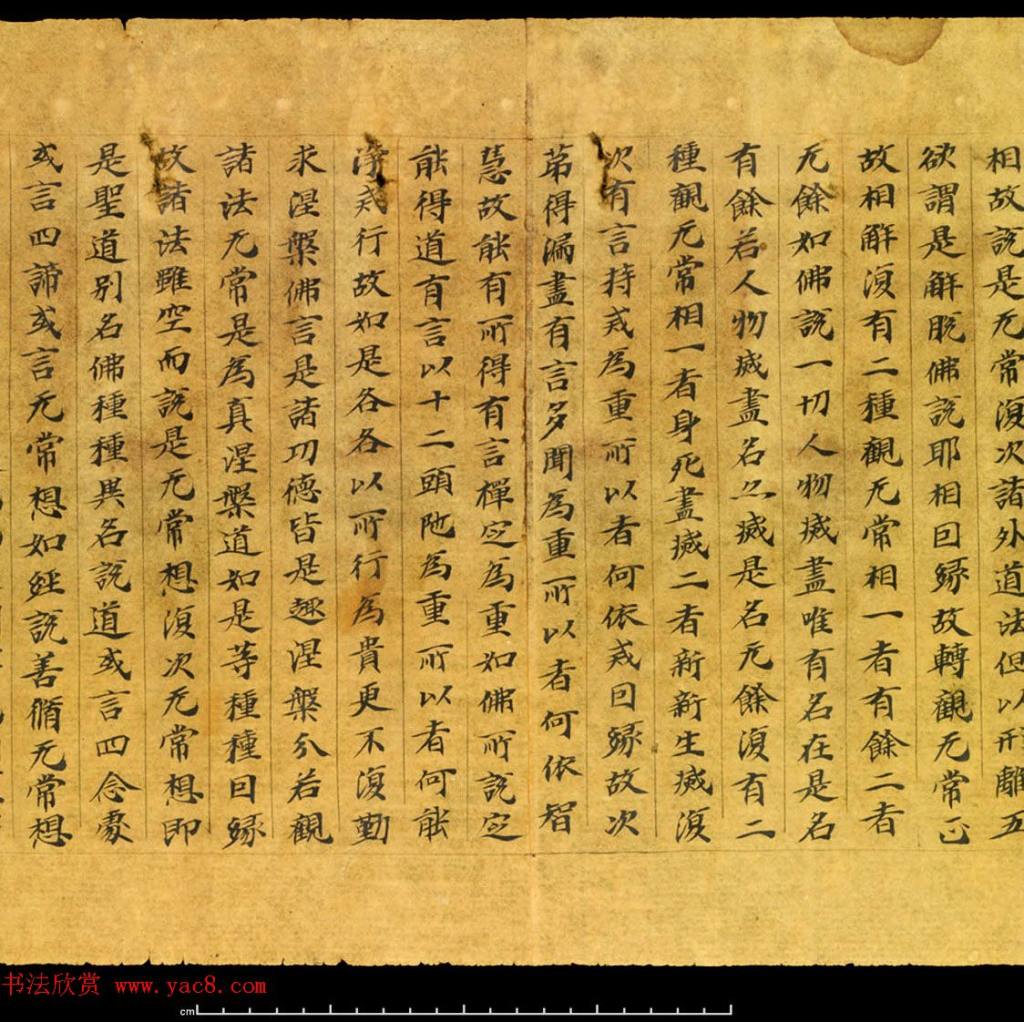 相故說是无常復次諸外道法但以形離五
欲謂是解脫佛說耶相回緣故轉觀无常正
故相解復有二種觀无常相一者有餘二者
无餘如佛說一切人物滅盡唯有名在是名
有餘若人物滅盡名亦滅是名无餘復有二
種觀无常相一者身死盡滅二者新新生滅復
次有言持戒為重所以者何依戒回緣故次
苐得漏盡有言多聞為重所以者何依智
慧故能有所得有言禪定為重如佛所說定
能得道有言以十二頭陁為重所以者何能
淨戒行故如是各各以所行為貴更不復勤
求涅槃佛言是諸功德皆是趣涅槃分若觀
諸法无常是為真涅槃道如是等種種回緣
故諸法雖空而說是无常想復次无常想即
是聖道別名佛種種異名說道或言四念處
或言四諦或言无常想如經說善脩无常想
书法欣赏 www.yac8.com
cm